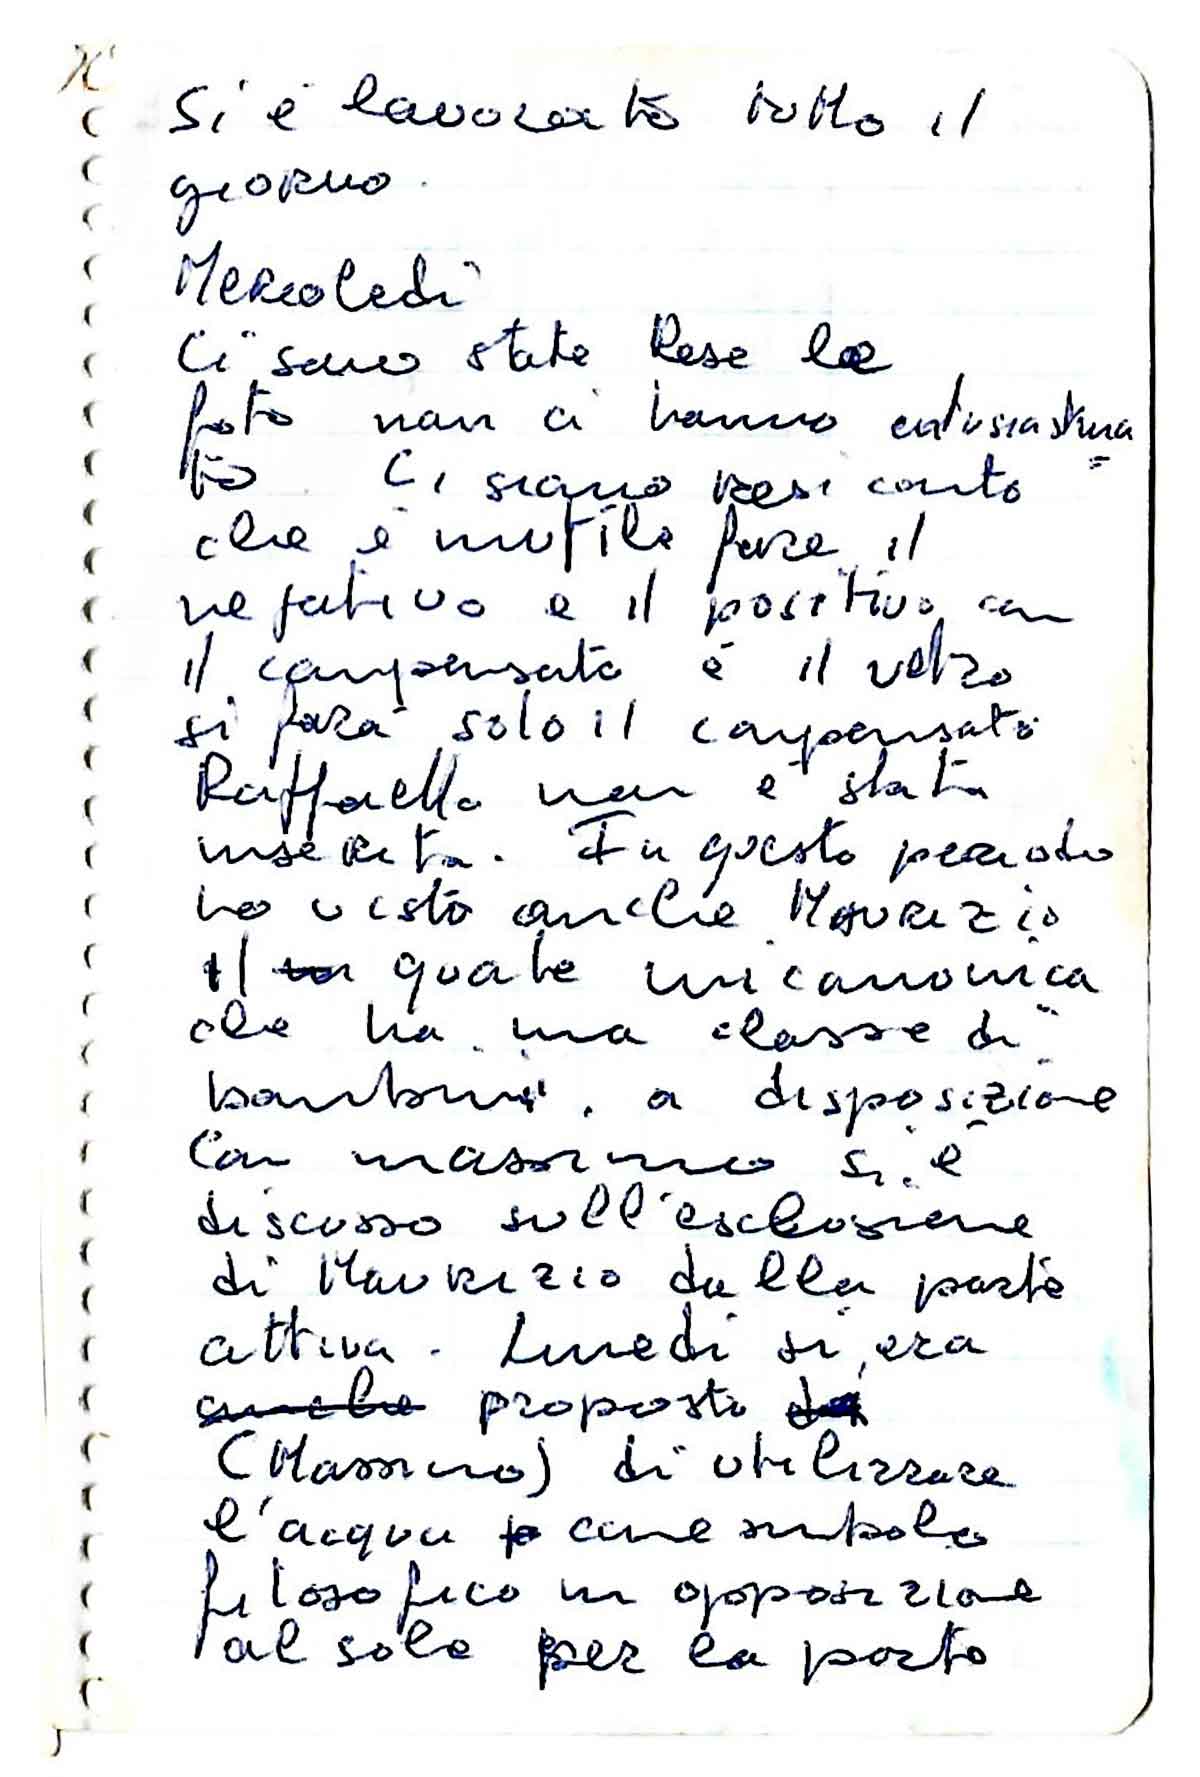 Si è lavorato tutto il
giorno.
Mercoledì
Ci sono state rese le
foto non ci hanno entusiasma
to Ci siamo resi conto
che è inutile fare il
negativo e il positivo con
il compensato e il vetro
si farà solo il compensato
Raffaella non è stata
inserita. In questo periodo
ho visto anche Maurizio
il quale mi comunica
che ha una classe di
bambini, a disposizione
Con massimo si è
discusso sull'esclusione
di Maurizio dalla parte
attiva. Lunedì si era
anche proposto di
(Massimo) di utilizzare
l'acqua come simbolo
filosofico in opposizione
al sole per la porto